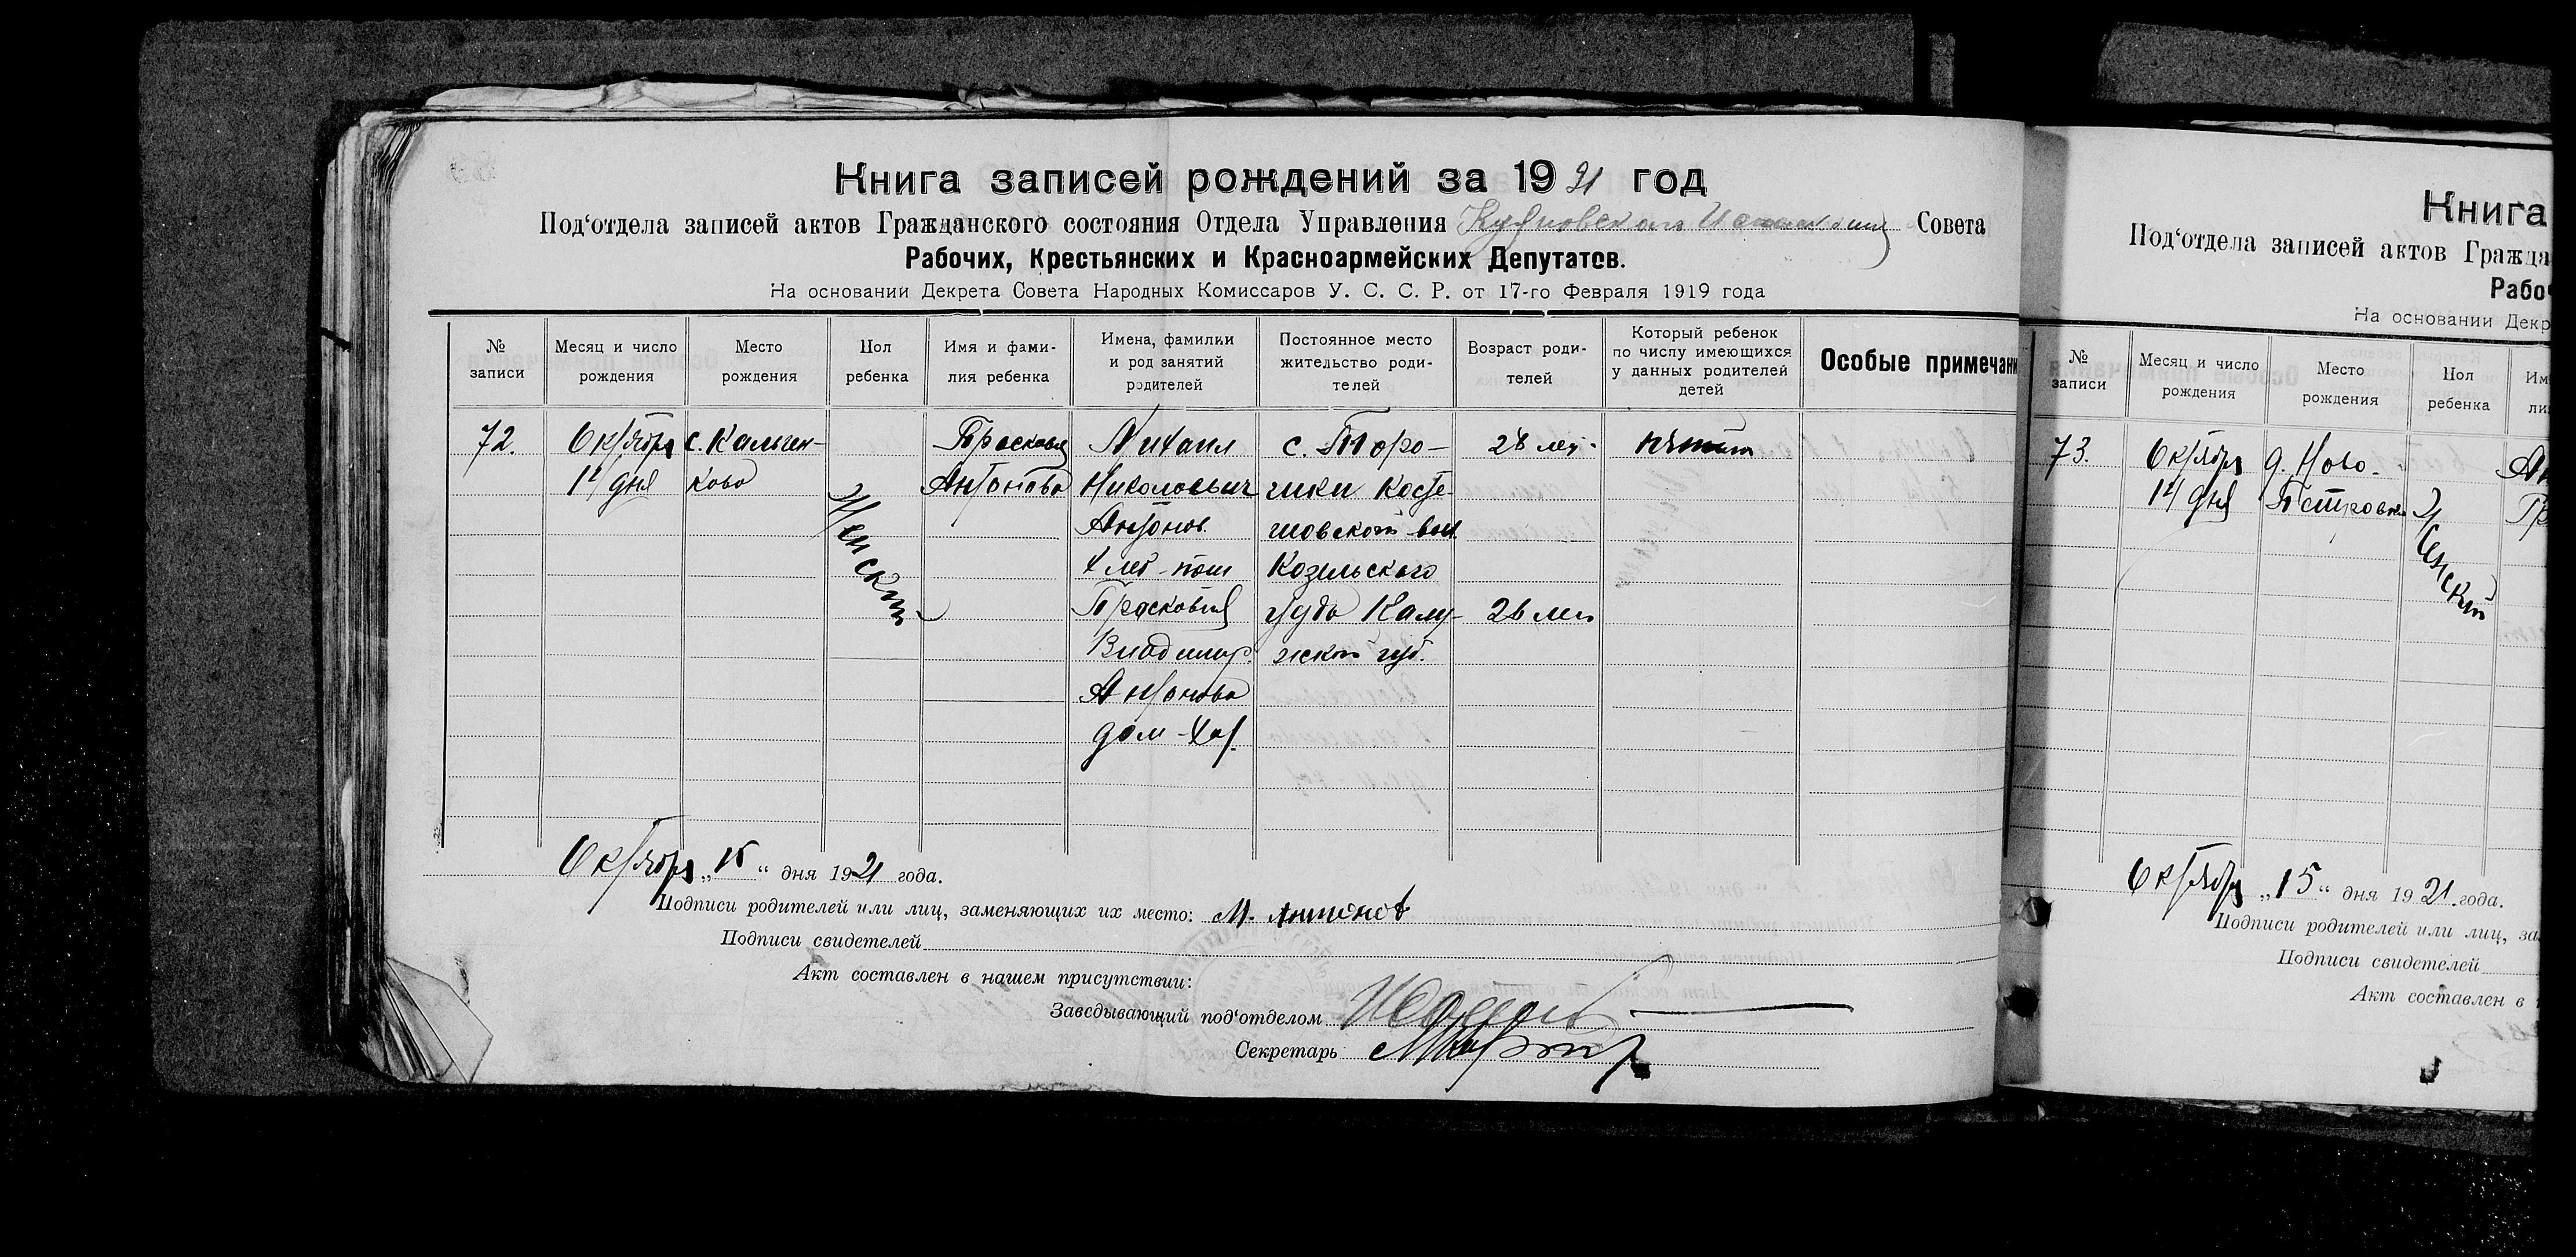 Книга записей рождений за 1921 год
Под'отдела записей актов Гражданского состояния Отдела Управления Совета
Рабочих, Крестьянских и Красноармейских Депутатов.
На основании Декрета Совета Народных Комиссаров У. С. С. Р. от 17-го Февраля 1919 года
№ записи
Месяц и число рождения
Место рождения
Пол ребенка
Имя и фами-
лия ребенка
Имена, фамилии
и род занятий
родителей
Постоянное место
жительство роди-
телей
Возраст роди-
телей
Который ребенок
по числу имеющихся
у данных родителей
детей
Особые примечани
72.
Октября
14 дня
с. Кальчен-
ково
Женский
Прасковья
Антонова
Михаил
Николаевич
Антонов.
Прасковия
Владимир.
Антонова
дом-хоз.
с.
Козельского
уезда Калу-
жской губ.
28 лет
26 лет
пятый
Октября „15“ дня 1921 года.
Подписи родителей или лиц, заменяющих их место: М. Антонов
Подписи свидетелей
Акт составлен в нашем присутствии:
Заведывающий под'отделом
Секретарь
Книга
Под'отдела записей актов Гражда
Рабоч
На основании Декр
№ записи
Месяц и число рождения
Место рождения
Пол ребенка
Им
ли
73.
Октября
14 дня
д. Ново-
Петровка
Женский
Ан
Октября „15“ дня 1921 года.
Подписи родителей или лиц, за
Подписи свидетелей
Акт составлен в